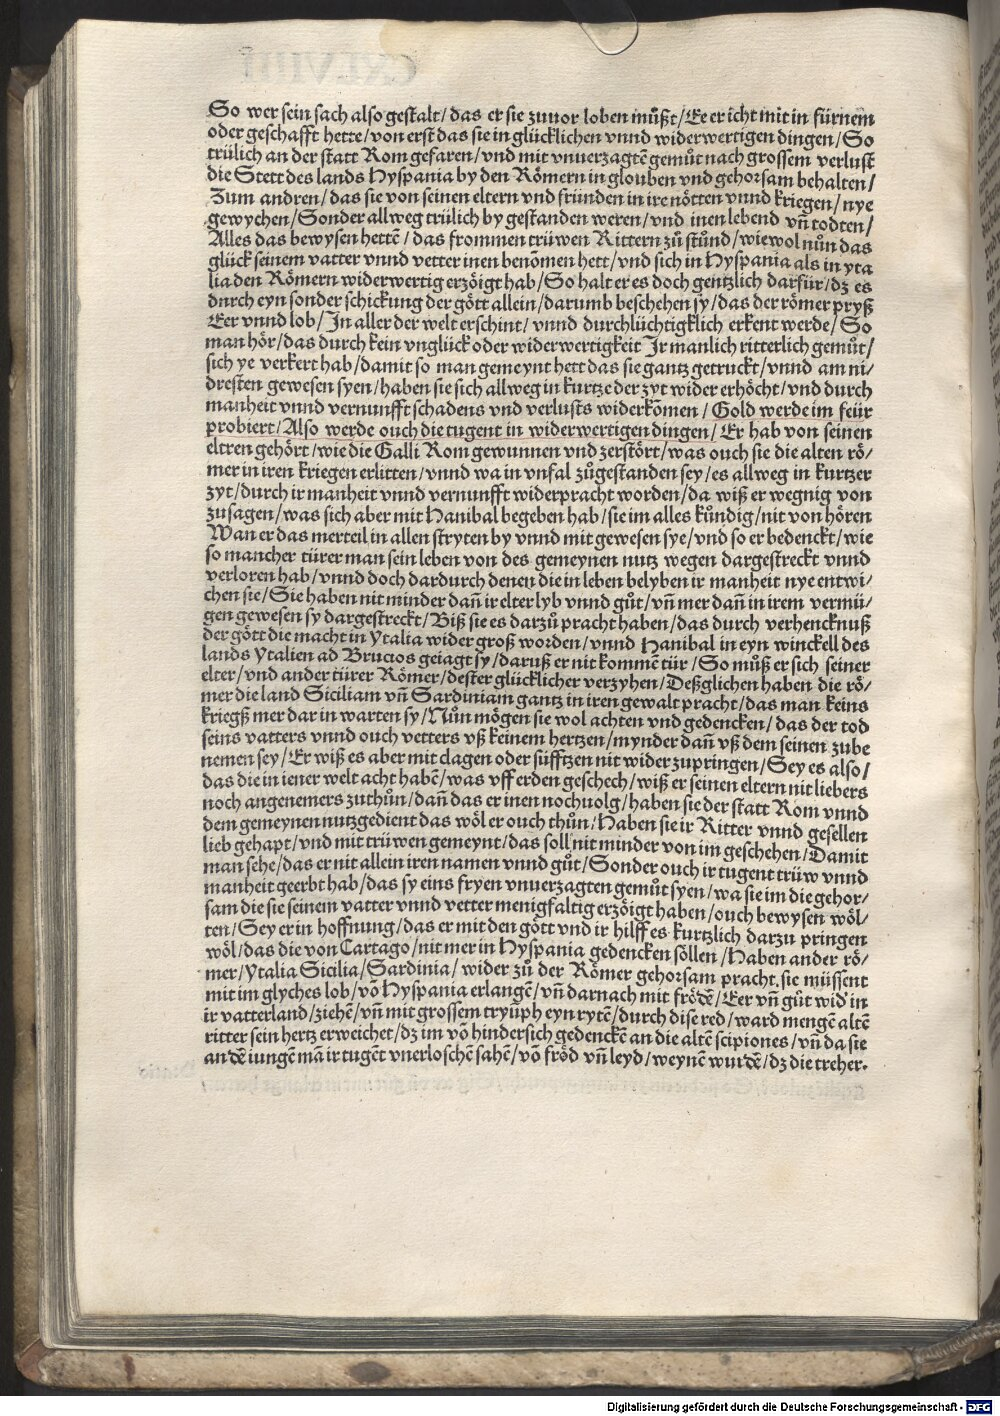 So wer sein sach also gestalt/ das er sie zuuor loben müßt/ Ee er icht mit in fürnem
oder geschafft hette/ von erst das sie in glücklichen vnnd widerwertigen dingen/ So
trülich an der statt Rom gefaren/ vnd mit vnuerzagtē gemůt nach grossem verlust
die Stett des lands Hyspania by den Römern in glouben vnd gehorsam behalten/
Zum andren/ das sie von seinen eltern vnd fründen in ire nötten vnnd kriegen/ nye
gewychen/ Sonder allweg trülich by gestanden weren/ vnd inen lebend vñ todten/
Alles das bewysen hettē/ das frommen trüwen Rittern zů stůnd/ wiewol nůn das
glück seinem vatter vnnd vetter inen benōmen hett/ vnd sich in Hyspania als in yta
lia den Römern widerwertig erzöigt hab/ So halt er es doch gentzlich darfür/ dz es
durch eyn sonder schickung der gött allein/ darumb beschehen sy/ das der römer pryß
Eer vnnd lob/ In aller der welt erschint/ vnnd durchlüchtigklich erkent werde/ So
man hör/ das durch kein vnglück oder widerwertigkeit Ir manlich ritterlich gemůt/
sich ye verkert hab/ damit so man gemeynt hett das sie gantz getruckt/ vnnd am ni/
dresten gewesen syen/ haben sie sich allweg in kurtze der zyt wider erhöcht/ vnd durch
manheit vnnd vernunfft schadens vnd verlusts widerkōmen/ Gold werde im feür
probiert/ Also werde ouch die tugent in widerwertigen dingen/ Er hab von seinen
eltren gehört/ wie die Galli Rom gewunnen vnd zerstört/ was ouch sie die alten rö/
mer in iren kriegen erlitten/ vnnd wa in vnfal zůgestanden sey/ es allweg in kurtzer
zyt/ durch ir manheit vnnd vernunfft widerpracht worden/ da wiß er wegnig von
zu sagen/ was sich aber mit Hanibal begeben hab/ sie im alles kůndig/ nit von hören
Wan er das merteil in allen stryten by vnnd mit gewesen sye/ vnd so er bedenckt/ wie
so mancher türer man sein leben von des gemeynen nutz wegen dargestreckt vnnd
verloren hab/ vnnd doch dardurch denen die in leben belyben ir manheit nye entwi/
chen sie/ Sie haben nit minder dañ ir elter lyb vnnd gůt/ vñ mer dañ in irem vermü/
gen gewesen sy dargestreckt/ Biß sie es darzů pracht haben/ das durch verhencknuß
der gött die macht in Ytalia wider groß worden/ vnnd Hanibal in eyn winckell des
lands Ytalien ad Brucios geiagt sy/ daruß er nit kommē tür/ So můß er sich seiner
elter/ vnd ander türer Römer/ dester glücklicher verzyhen/ Deßglichen haben die rö/
mer die land Siciliam vñ Sardiniam gantz in iren gewalt pracht/ das man keins
kriegß mer dar in warten sy/ Nůn mögen sie wol achten vnd gedencken/ das der tod
seins vatters vnnd ouch vetters vß keinem hertzen/ mynder dañ vß dem seinen zube
nemen sey/ Er wiß es aber mit clagen oder süfftzen nit wider zupringen/ Sey es also/
das die in iener welt acht habē/ was vff erden geschech/ wiß er seinen eltern nit liebers
noch angenemers zuthůn/ dañ das er inen nochuolg/ haben sie der statt Rom vnnd
dem gemeynen nutz gedient das wöl er ouch thůn/ Haben sie ir Ritter vnnd gesellen
lieb gehapt/ vnd mit trüwen gemeynt/ das soll nit minder von im geschehen/ Damit
man sehe/ das er nit allein iren namen vnnd gůt/ Sonder ouch ir tugent trüw vnnd
manheit geerbt hab/ das sy eins fryen vnuerzagten gemůt syen/ wa sie im die gehor/
sam die sie seinem vatter vnnd vetter menigfaltig erzöigt haben/ ouch bewysen wöl/
ten/ Sey er in hoffnung/ das er mit den gött vnd ir hilff es kurtzlich darzu pringen
wöl/ das die von Cartago/ nit mer in Hyspania gedencken söllen/ Haben ander rö/
mer/ Ytalia Sicilia/ Sardinia/ wider zů der Römer gehorsam pracht, sie müssent
mit im glyches lob/ vō Hyspania erlangē/ vñ darnach mit frödē/ Eer vñ gůt wid' in
ir vatterland/ ziehē/ vñ mit grossem tryüph eyn rytē/ durch dise red/ ward mengē altē
ritter sein hertz erweichet/ dz im vō hindersich gedenckē an die altē scipiones/ vñ da sie
an dē iungē mā ir tugēt vnerloschē sahē/ vō fröd vñ leyd/ weynē wurdē/ dz die treher.
Digitalisierung gefördert durch die Deutsche Forschungsgemeinschaft - DFG